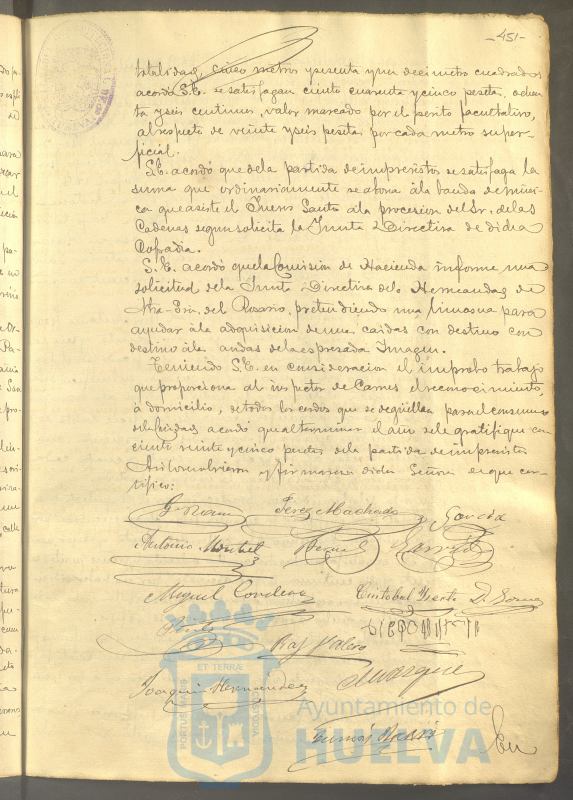 -451-
totalidad, cinco metros y sesenta y un decimetro cuadrados
acordó S.E. se satisfagan ciento cuarenta y cinco pesetas, ochenta
y seis centimos, valor marcado por el perito facultativo,
al respeto de veinte y seis pesetas por cada metro super-
ficial.
S.E. acordó que de la partida de imprevistos se satisfaga la
suma que ordinariamente se abona á la banda de músi-
ca que asiste el Jueves Santo á la procesion del Sr. de las
Cadenas segun solicita la Junta Directiva de dicha
Cofradia.
S.E. acordó que la Comision de Hacienda informe una
solicitud de la Junta Directiva de la Hermandad de
Ntra. Sra. del Rosario, pretendiendo una limosna para
ayudar á la adquisicion de unas caidas con destino con
destino á las andas de la espresada Imagen.
Teniendo S.E. en consideracion el improbo trabajo
que proporciona al inspector de Carnes el reconocimiento,
á domicilio, de todos los cerdos que se degüellan para el consumo
de la Ciudad, acordó que al terminar el año se le gratifique con
ciento veinte y cinco pesetas de la partida de imprevistos
Asi lo acordaron y firmaron dichos Señores de que cer-
tifico:
Perez Machado
Garcia
Antonio Montiel
Garrido
Miguel Cordero
Cristobal
Raf Valero
Marquez
Joaquin Hernandez
Tomás
PORTUS MARIS
ET TERRÆ
CUSTODIA
Ayuntamiento de
HUELVA